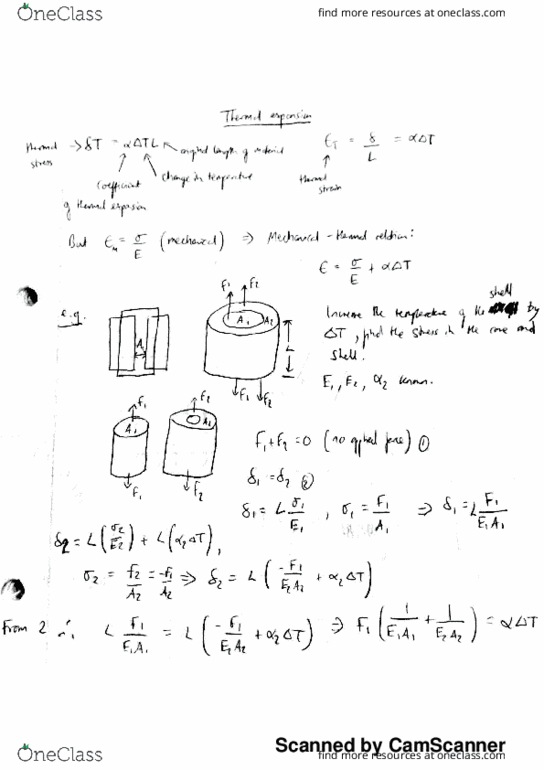 OneClass
find more resources at oneclass.com
Thermal expansion
thermal stress → δT = αΔTL ← original length of material
ε_T = δ/L = αΔT
coefficient of thermal expansion
change in temperature
thermal strain
But ε_m = σ/E (mechanical) ⇒ Mechanical - thermal relation:
ε = σ/E + αΔT
e.g.
F₁ F₂
A₁ A₂
A₁
L
F₁ F₂
Increase the temperature of the shell by
ΔT, find the stress in the core and
shell.
E₁, E₂, α₂ known.
F₁ F₂
A₁ A₂
F₁ F₂
F₁ + F₂ = 0 (no applied force) ①
δ₁ = δ₂ ②
δ₁ = L σ₁/E₁ , σ₁ = F₁/A₁ ⇒ δ₁ = L F₁/E₁A₁
δ₂ = L(σ₂/E₂) + L(α₂ΔT),
σ₂ = F₂/A₂ = -F₁/A₂ ⇒ δ₂ = L(-F₁/E₂A₂ + α₂ΔT)
From 2 ∴ L F₁/E₁A₁ = L(-F₁/E₂A₂ + α₂ΔT) ⇒ F₁(1/E₁A₁ + 1/E₂A₂) = αΔT
Scanned by CamScanner
OneClass
find more resources at oneclass.com